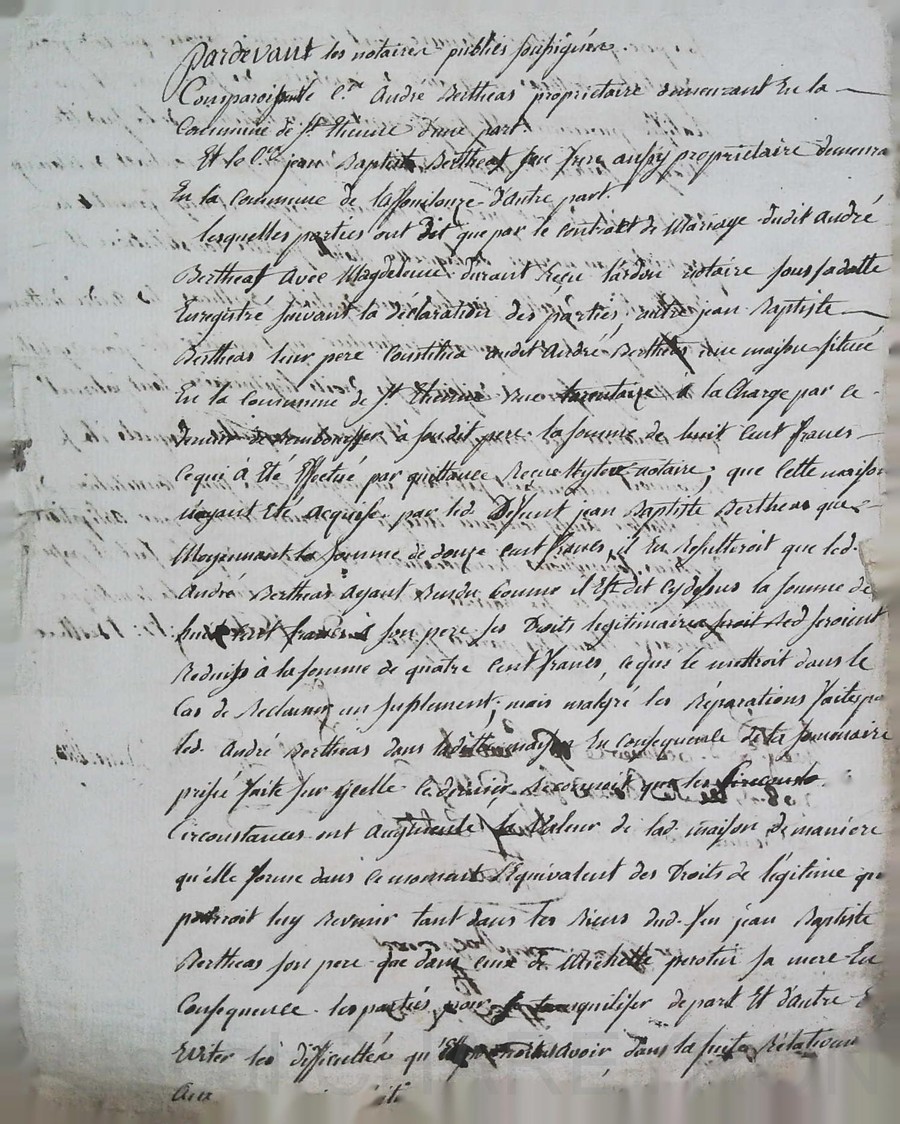 Pardevant les notaires publics soussignés.
Comparoissent le C.en André Bertheas propriétaire demeurant En la
Commune de St Etienne d'une part.
Et le C.en jean Baptiste Bertheas son frere aussy propriétaire demeura
En la Commune de la fouillouze d'autre part.
lesquelles parties ont dit que par le Contrat de Mariage dudit André
Bertheas avec Magdeleine durant Reçu notaire sous sa datte
Enregistré suivant la déclaration des parties, autre jean Baptiste
Bertheas leur pere Constitua audit André Bertheas une maison située
En la Commune de St Etienne Rue a la Charge par ce
dernier de rembourser à sondit pere la somme de huit Cent francs
ce qui à Eté Effectué par quittance Reçue notaire; que Cette maison
n'ayant Eté acquise par led. Défunt jean Baptiste Bertheas que
Moyennant la somme de douze cent francs, il En Résulteroit que led.
André Bertheas ayant Rendu Comme il Est dit cydessus la somme de
huit Cent francs à son pere ses Droits légitimaires seroient
Réduits à la somme de quatre Cent francs, ce qui le mettroit dans le
Cas de Réclamer un suplement; mais malgré les Réparations faites pa
led. André Bertheas dans ladite maison En Conséquence de la
prisée faite sur ycelle ce dernier Reconnoit que les
Circonstances ont augmenté la Valeur de lad. maison de maniere
qu'elle forme dans ce moment l'Equivalent des Droits de légitime qui
pourroit luy Revenir tant dans les Biens dud. feu jean Baptiste
Bertheas son pere que dans ceux de Michelle sa mere En
Conséquence les parties pour se tranquiliser de part Et d'autre E
Eviter les difficultés qu'il avoir dans la suite Rélativem
Aux